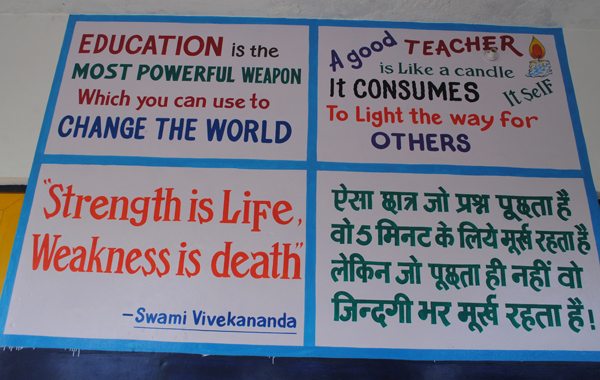 EDUCATION is the
MOST POWERFUL WEAPON
Which you can use to
CHANGE THE WORLD
A good TEACHER
is Like a candle
It CONSUMES It Self
To Light the way for
OTHERS
"Strength is Life,
Weakness is death"
- Swami Vivekananda
ऐसा छात्र जो प्रश्न पूछता है
वो 5 मिनट के लिये मूर्ख रहता है
लेकिन जो पूछता ही नहीं वो
जिन्दगी भर मूर्ख रहता है!